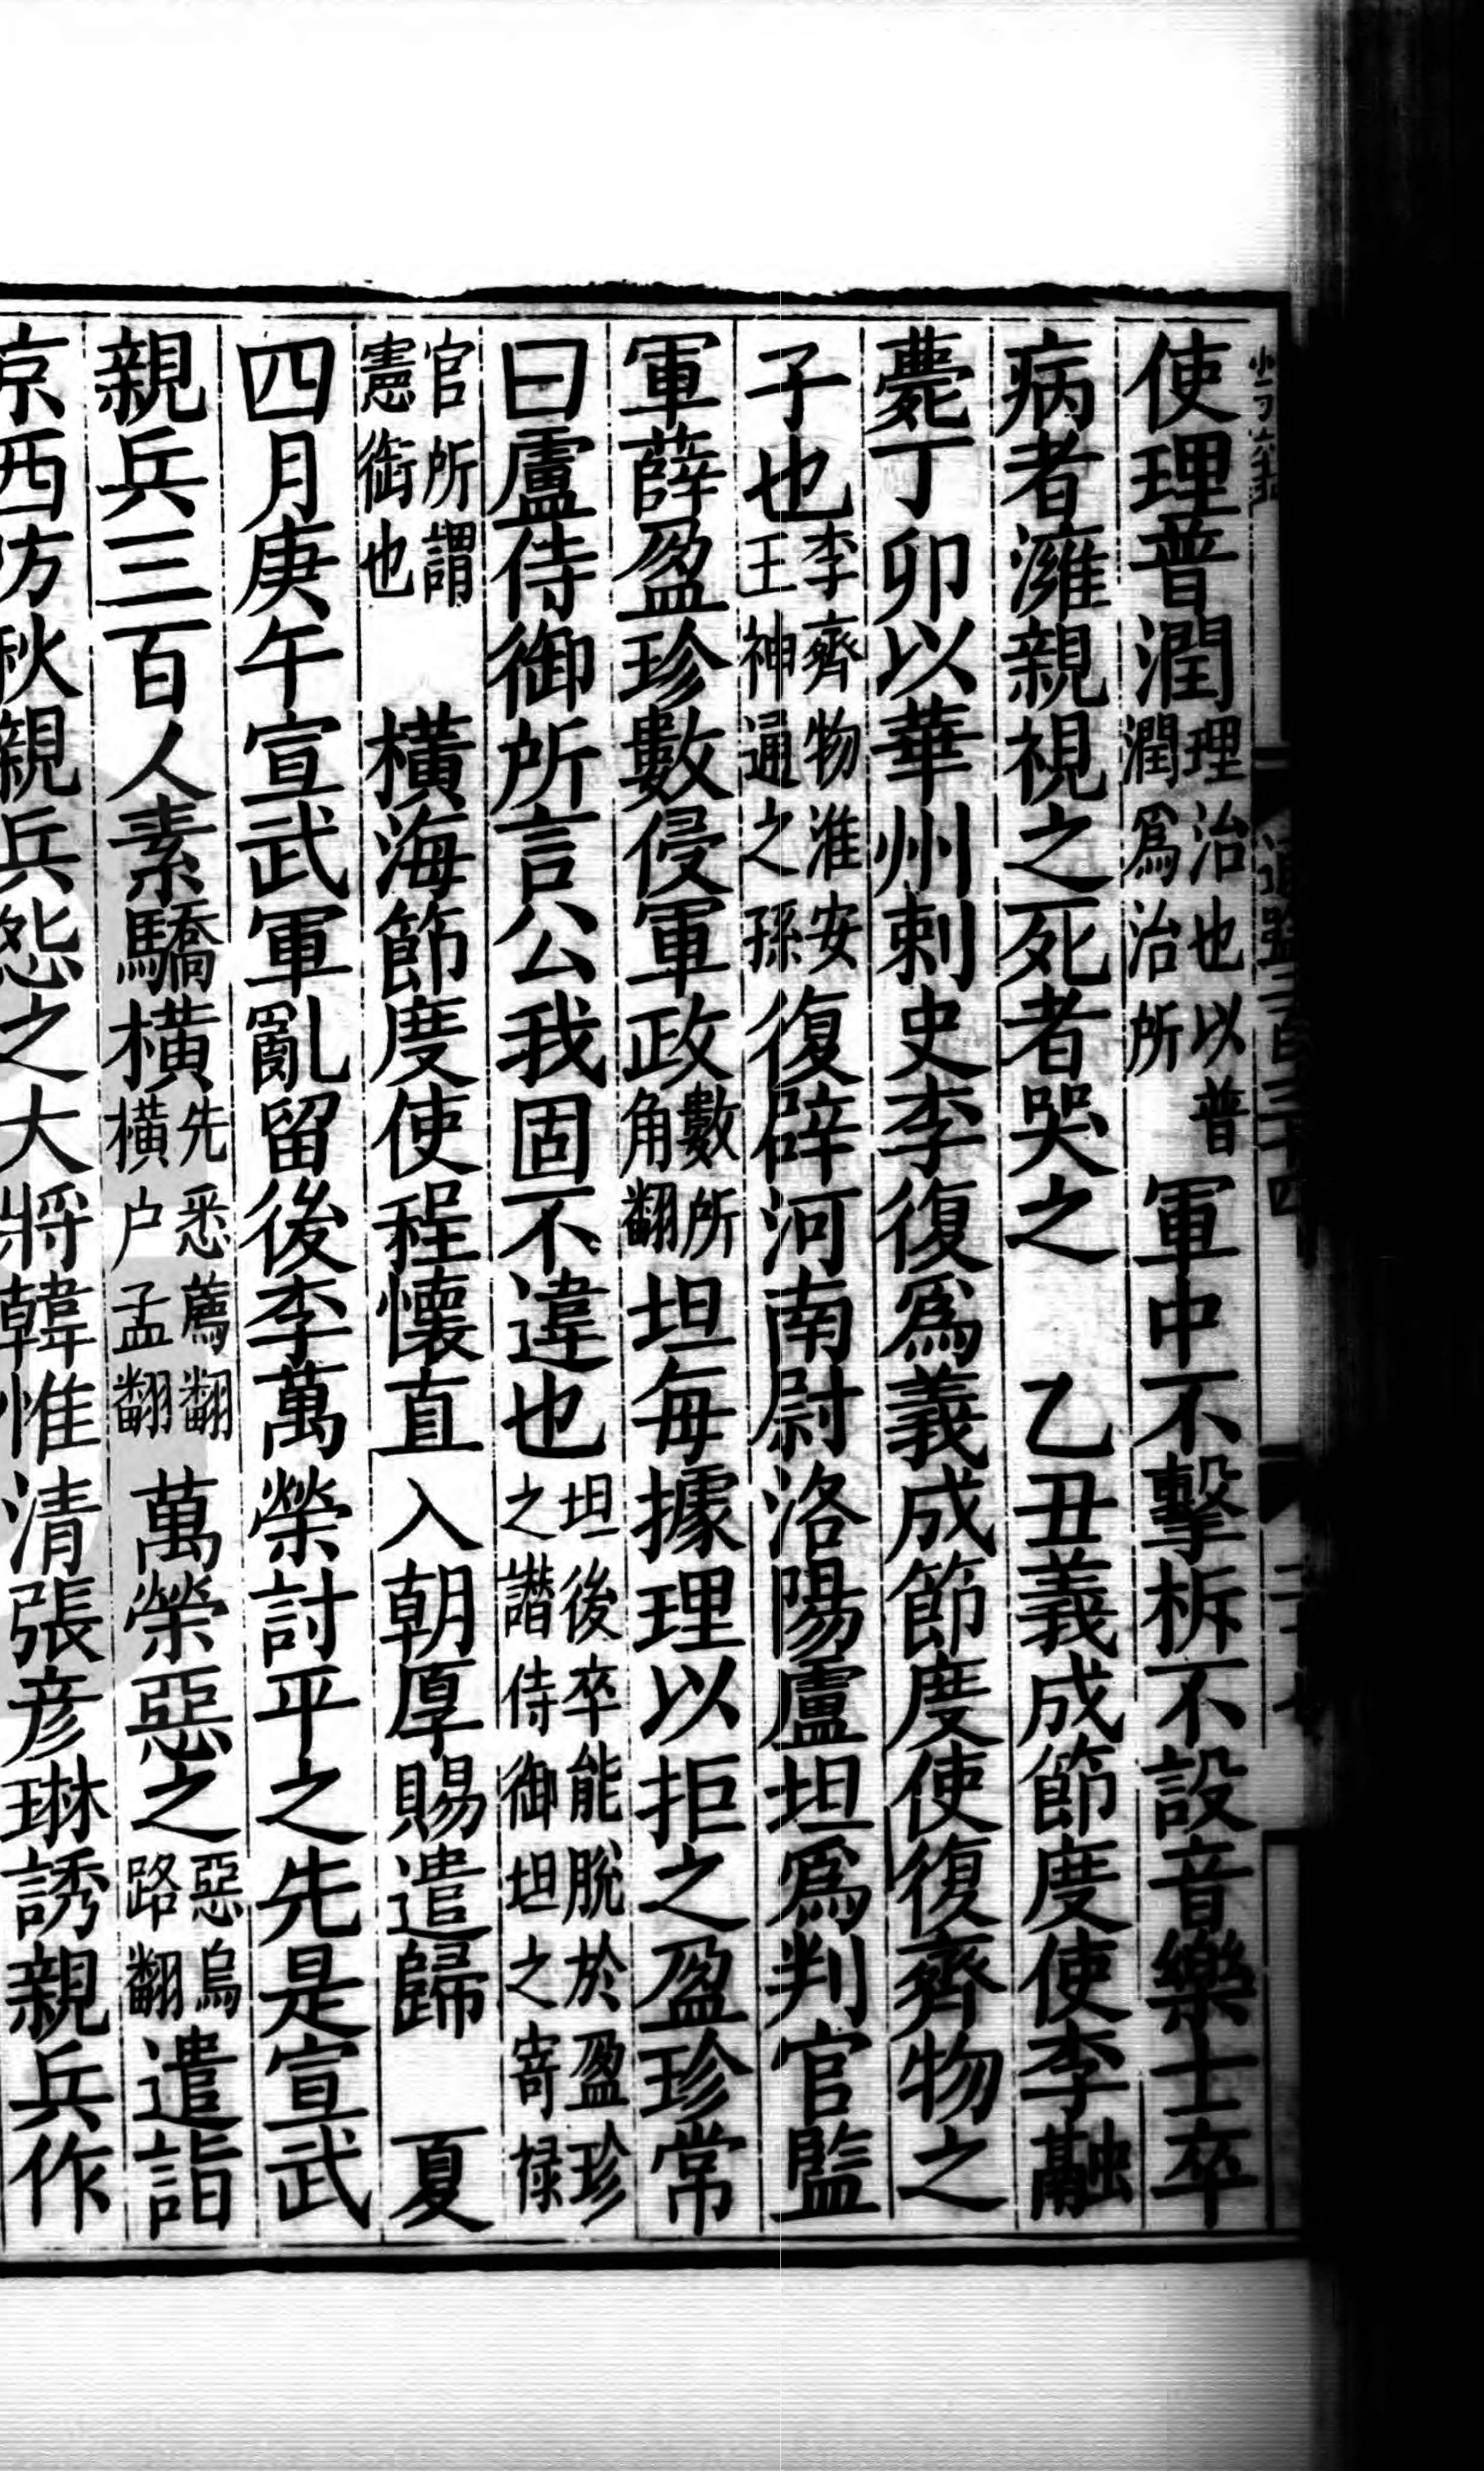 使理普潤理治也以普潤爲治所軍中不擊柝不設音樂士卒
病者濰親視之死者哭之　乙丑義成節度使李融
薨丁卯以華州刺史李復爲義成節度使復齊物之
子也李齊物淮安王神通之孫復辟河南尉洛陽盧坦爲判官監
軍薛盈珍數侵軍政數所角翻坦每據理以拒之盈珍常
曰盧侍御所言公我固不違也坦後卒能脫於盈珍之譖侍御坦之寄祿
官所謂憲銜也　橫海節度使程懷直入朝厚賜遣歸　夏
四月庚午宣武軍亂留後李萬榮討平之先是宣武
親兵三百人素驕橫先悉薦翻橫户孟翻萬榮惡之惡烏路翻遣詣
京西防秋親兵怨之大將韓惟清張彥琳誘親兵作